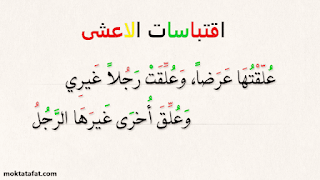 اقتباسات الاعشى
عُلِّقْتُهَا عَرَضاً، وَعُلِّقَتْ رَجُلاً غَيرِي
وَعُلِّقَ أُخرَى غَيرَهَا الرَّجُلُ
moktatafat.com